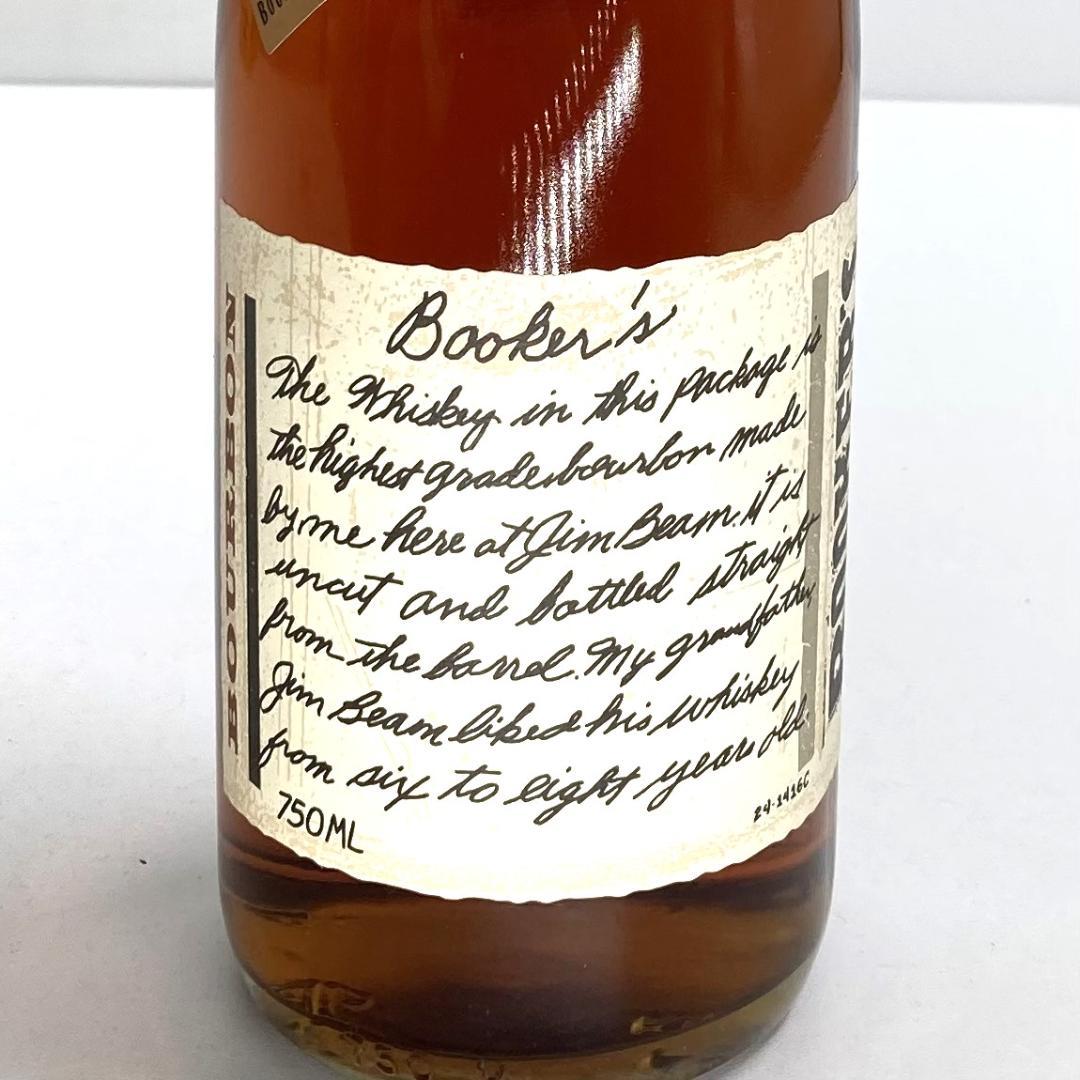 BOURBON
Booker's
The Whiskey in this package is
the highest grade bourbon made
by me here at Jim Beam. it is
uncut and bottled straight
from the barrel. My grandfather
Jim Beam liked his whiskey
from six to eight years old.
750ML
24-1416C